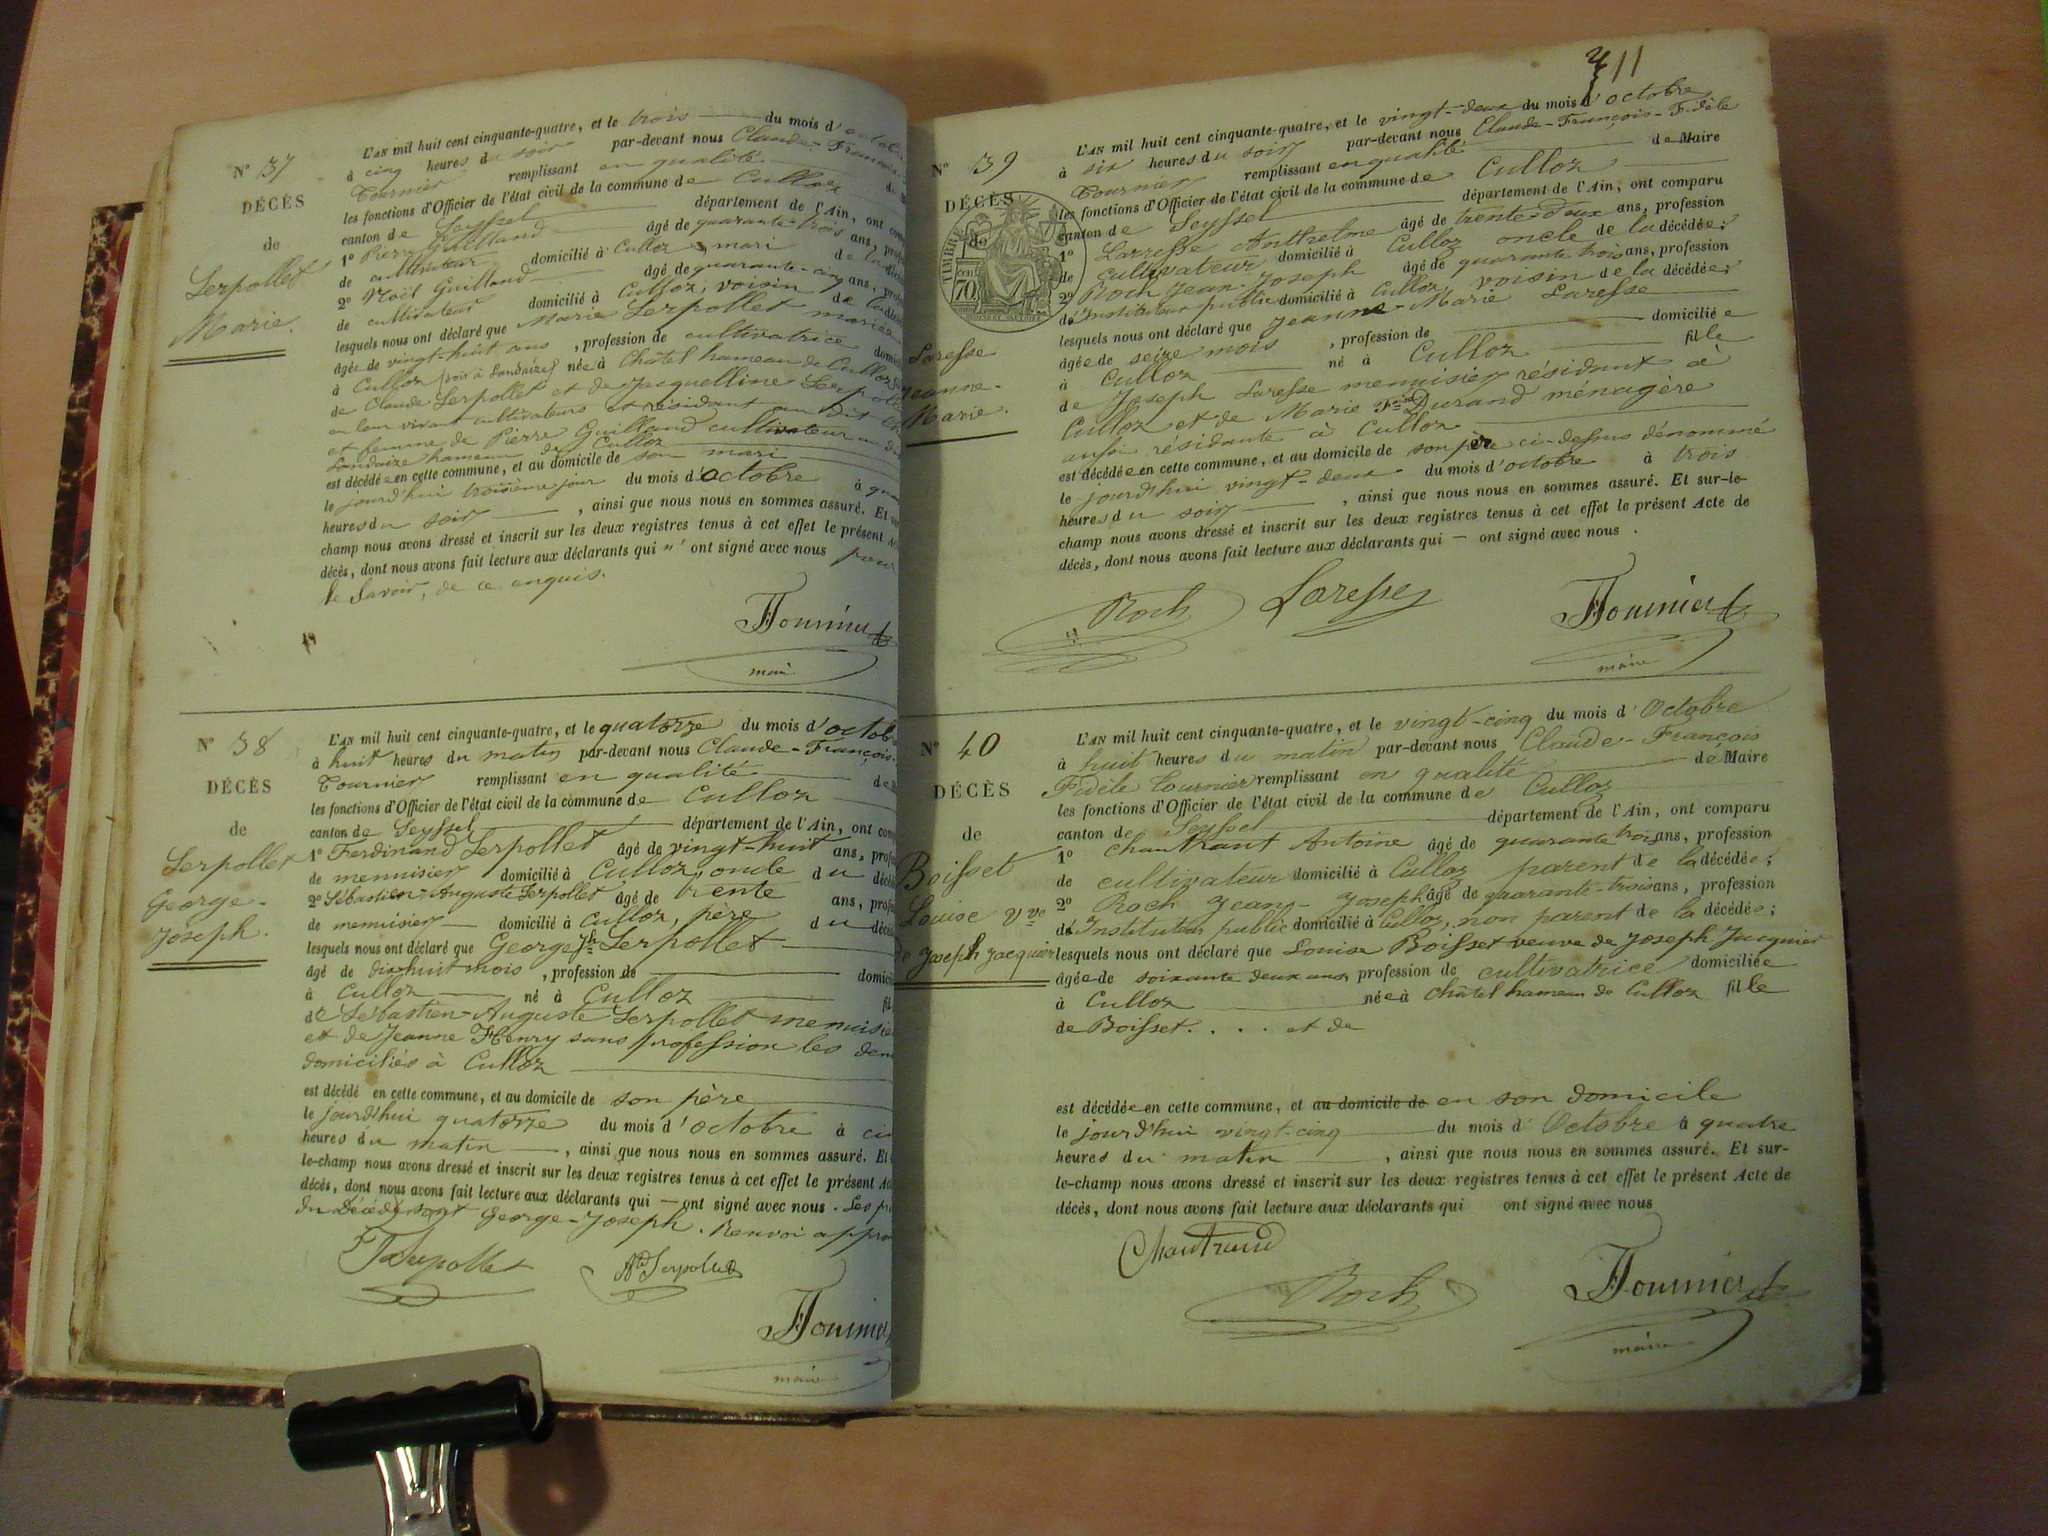 N° 37
DÉCÈS
de
Serpollet
Marie.
L'AN mil huit cent cinquante-quatre, et le trois du mois d'
à cinq heures du soir par-devant nous Claude-François
Tournier remplissant en qualité
les fonctions d'Officier de l'état civil de la commune de Culloz
canton de Seyssel département de l'Ain, ont
1° Pierre Guilland âgé de quarante-trois ans,
de cultivateur domicilié à Culloz, mari de la
2° Noël Guilland âgé de quarante-cinq ans,
de cultivateur domicilié à Culloz, voisin de
lesquels nous ont déclaré que Marie Serpollet mariée
âgée de vingt-huit ans, profession de cultivatrice
à Culloz née à Châtel hameau de Culloz
de Claude Serpollet et de Jacquelline
en leur vivant cultivateurs et résidant au dit
et femme de Pierre Guilland cultivateur au
Landaize hameau de Culloz
est décédée en cette commune, et au domicile de son mari
le jourd'hui troisième jour du mois d'octobre à
heures du soir, ainsi que nous nous en sommes assuré. Et
champ nous avons dressé et inscrit sur les deux registres tenus à cet effet le présent
décès, dont nous avons fait lecture aux déclarants qui n'ont signé avec nous pour
le Savoir, de ce enquis.
Tournier
maire
N° 38
DÉCÈS
de
Serpollet
George-
Joseph.
L'AN mil huit cent cinquante-quatre, et le quatorze du mois d'
à huit heures du matin par-devant nous Claude-François
Tournier remplissant en qualité de
les fonctions d'Officier de l'état civil de la commune de Culloz
canton de Seyssel département de l'Ain, ont
1° Ferdinand Serpollet âgé de vingt-huit ans,
de menuisier domicilié à Culloz, oncle du
2° Sébastien-Auguste Serpollet âgé de trente ans,
de menuisier domicilié à Culloz, père du
lesquels nous ont déclaré que George Jph Serpollet
âgé de dix huit mois, profession de
à Culloz né à Culloz
de Sébastien-Auguste Serpollet
et de Jeanne Henry sans profession les
domiciliés à Culloz
est décédé en cette commune, et au domicile de son père
le jourd'hui quatorze du mois d'octobre à
heures du matin, ainsi que nous nous en sommes assuré. Et
le-champ nous avons dressé et inscrit sur les deux registres tenus à cet effet le présent
décès, dont nous avons fait lecture aux déclarants qui — ont signé avec nous. Les
du Décédé sont George-Joseph. Renvoi
Serpollet
Serpollet
Tournier
maire
11
N° 39
DÉCÈS
de
TIMBRE
70
Laresse
Jeanne-
Marie.
L'AN mil huit cent cinquante-quatre, et le vingt-deux du mois d'octobre
à six heures du soir par-devant nous Claude-François-Fidèle
Tournier remplissant en qualité de Maire
les fonctions d'Officier de l'état civil de la commune de Culloz
canton de Seyssel département de l'Ain, ont comparu
1° Larresse Anthelme âgé de trente-deux ans, profession
de Cultivateur domicilié à Culloz oncle de la décédée;
2° Roch Jean-Joseph âgé de quarante trois ans, profession
de Instituteur public domicilié à Culloz, voisin de la décédée;
lesquels nous ont déclaré que Jeanne-Marie Laresse
âgée de seize mois, profession de domiciliée
à Culloz né à Culloz fille
de Joseph Laresse menuisier résidant à
Culloz et de Marie Durand ménagère
aussi résidante à Culloz
est décédée en cette commune, et au domicile de son père ci-dessus dénommé
le jourd'hui vingt-deux du mois d'octobre à trois
heures du soir, ainsi que nous nous en sommes assuré. Et sur-le-
champ nous avons dressé et inscrit sur les deux registres tenus à cet effet le présent Acte de
décès, dont nous avons fait lecture aux déclarants qui — ont signé avec nous.
Roch Laresse Tournier
maire
N° 40
DÉCÈS
de
Boisset
Louise Vve
de Joseph Jacquier
L'AN mil huit cent cinquante-quatre, et le vingt-cinq du mois d'Octobre
à huit heures du matin par-devant nous Claude-François
Fidèle Tournier remplissant en qualité de Maire
les fonctions d'Officier de l'état civil de la commune de Culloz
canton de Seyssel département de l'Ain, ont comparu
1° Chantrant Antoine âgé de quarante trois ans, profession
de cultivateur domicilié à Culloz parent de la décédée;
2° Roch Jean-Joseph âgé de quarante-trois ans, profession
de Instituteur public domicilié à Culloz, non parent de la décédée;
lesquels nous ont déclaré que Louise Boisset veuve de Joseph Jacquier
âgée de soixante deux ans, profession de cultivatrice domiciliée
à Culloz née à Châtel hameau de Culloz fille
de Boisset. . . . et de
est décédée en cette commune, et au domicile de en son domicile
le jourd'hui vingt-cinq du mois d'Octobre à quatre
heures du matin, ainsi que nous nous en sommes assuré. Et sur-
le-champ nous avons dressé et inscrit sur les deux registres tenus à cet effet le présent Acte de
décès, dont nous avons fait lecture aux déclarants qui ont signé avec nous
Chantrand
Roch Tournier
maire